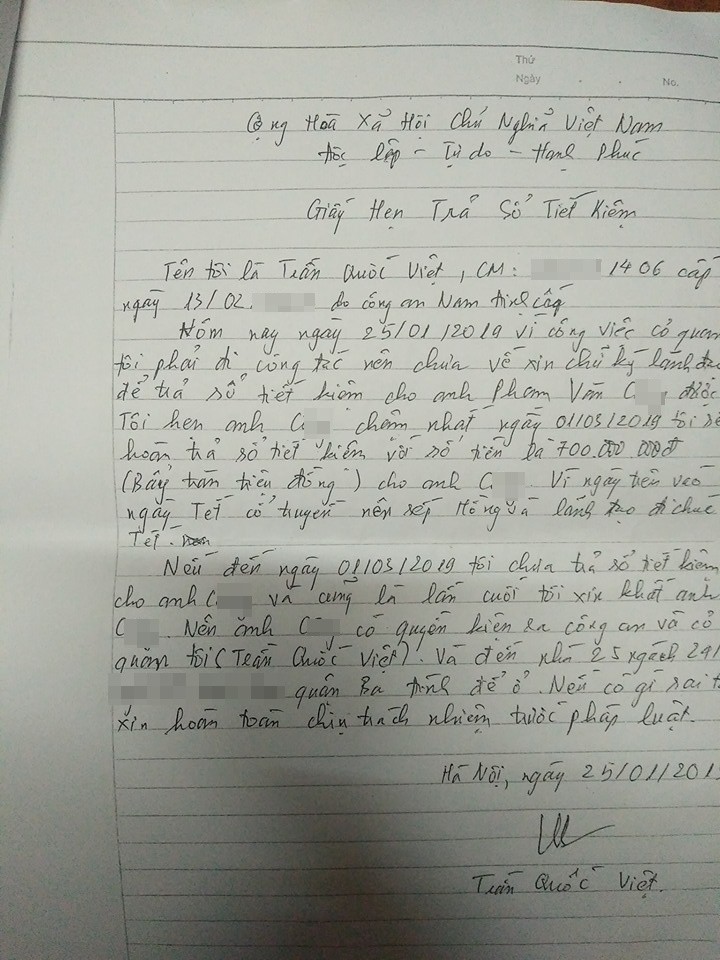 Thứ
Ngày . . No.
Cộng Hoà Xả Hội Chủ Nghĩa Việt Nam
Độc lập - Tự do - Hạnh Phúc
Giấy Hẹn Trả Sổ Tiết Kiệm
Tên tôi là Trần Quốc Việt, CM: 1406 cấp
ngày 13/02. do công an Nam Định cấp
Hôm nay ngày 25/01/2019 vì công việc cơ quan
tôi phải đi công tác nên chưa về xin chữ ký lãnh đạo
để trả sổ tiết kiệm cho anh Phạm Văn C được
Tôi hẹn anh C chậm nhất ngày 01/03/2019 tôi sẽ
hoàn trả sổ tiết kiệm với số tiền là 700.000.000đ
(Bẩy trăm triệu đồng) cho anh C. Vì ngày tiến vào
ngày Tết cổ truyền nên sếp Hồng và lãnh đạo đi chúc
Tết.
Nếu đến ngày 01/03/2019 tôi chưa trả sổ tiết kiệm
cho anh C và cũng là lần cuối tôi xin khất anh
C. Nên anh C có quyền kiện ra công an và cơ
quan tôi (Trần Quốc Việt). Và đến nhà 25 ngách 291
quận Ba Đình để ở. Nếu có gì sai t
xin hoàn toàn chịu trách nhiệm trước pháp luật.
Hà Nội, ngày 25/01/201
Trần Quốc Việt.